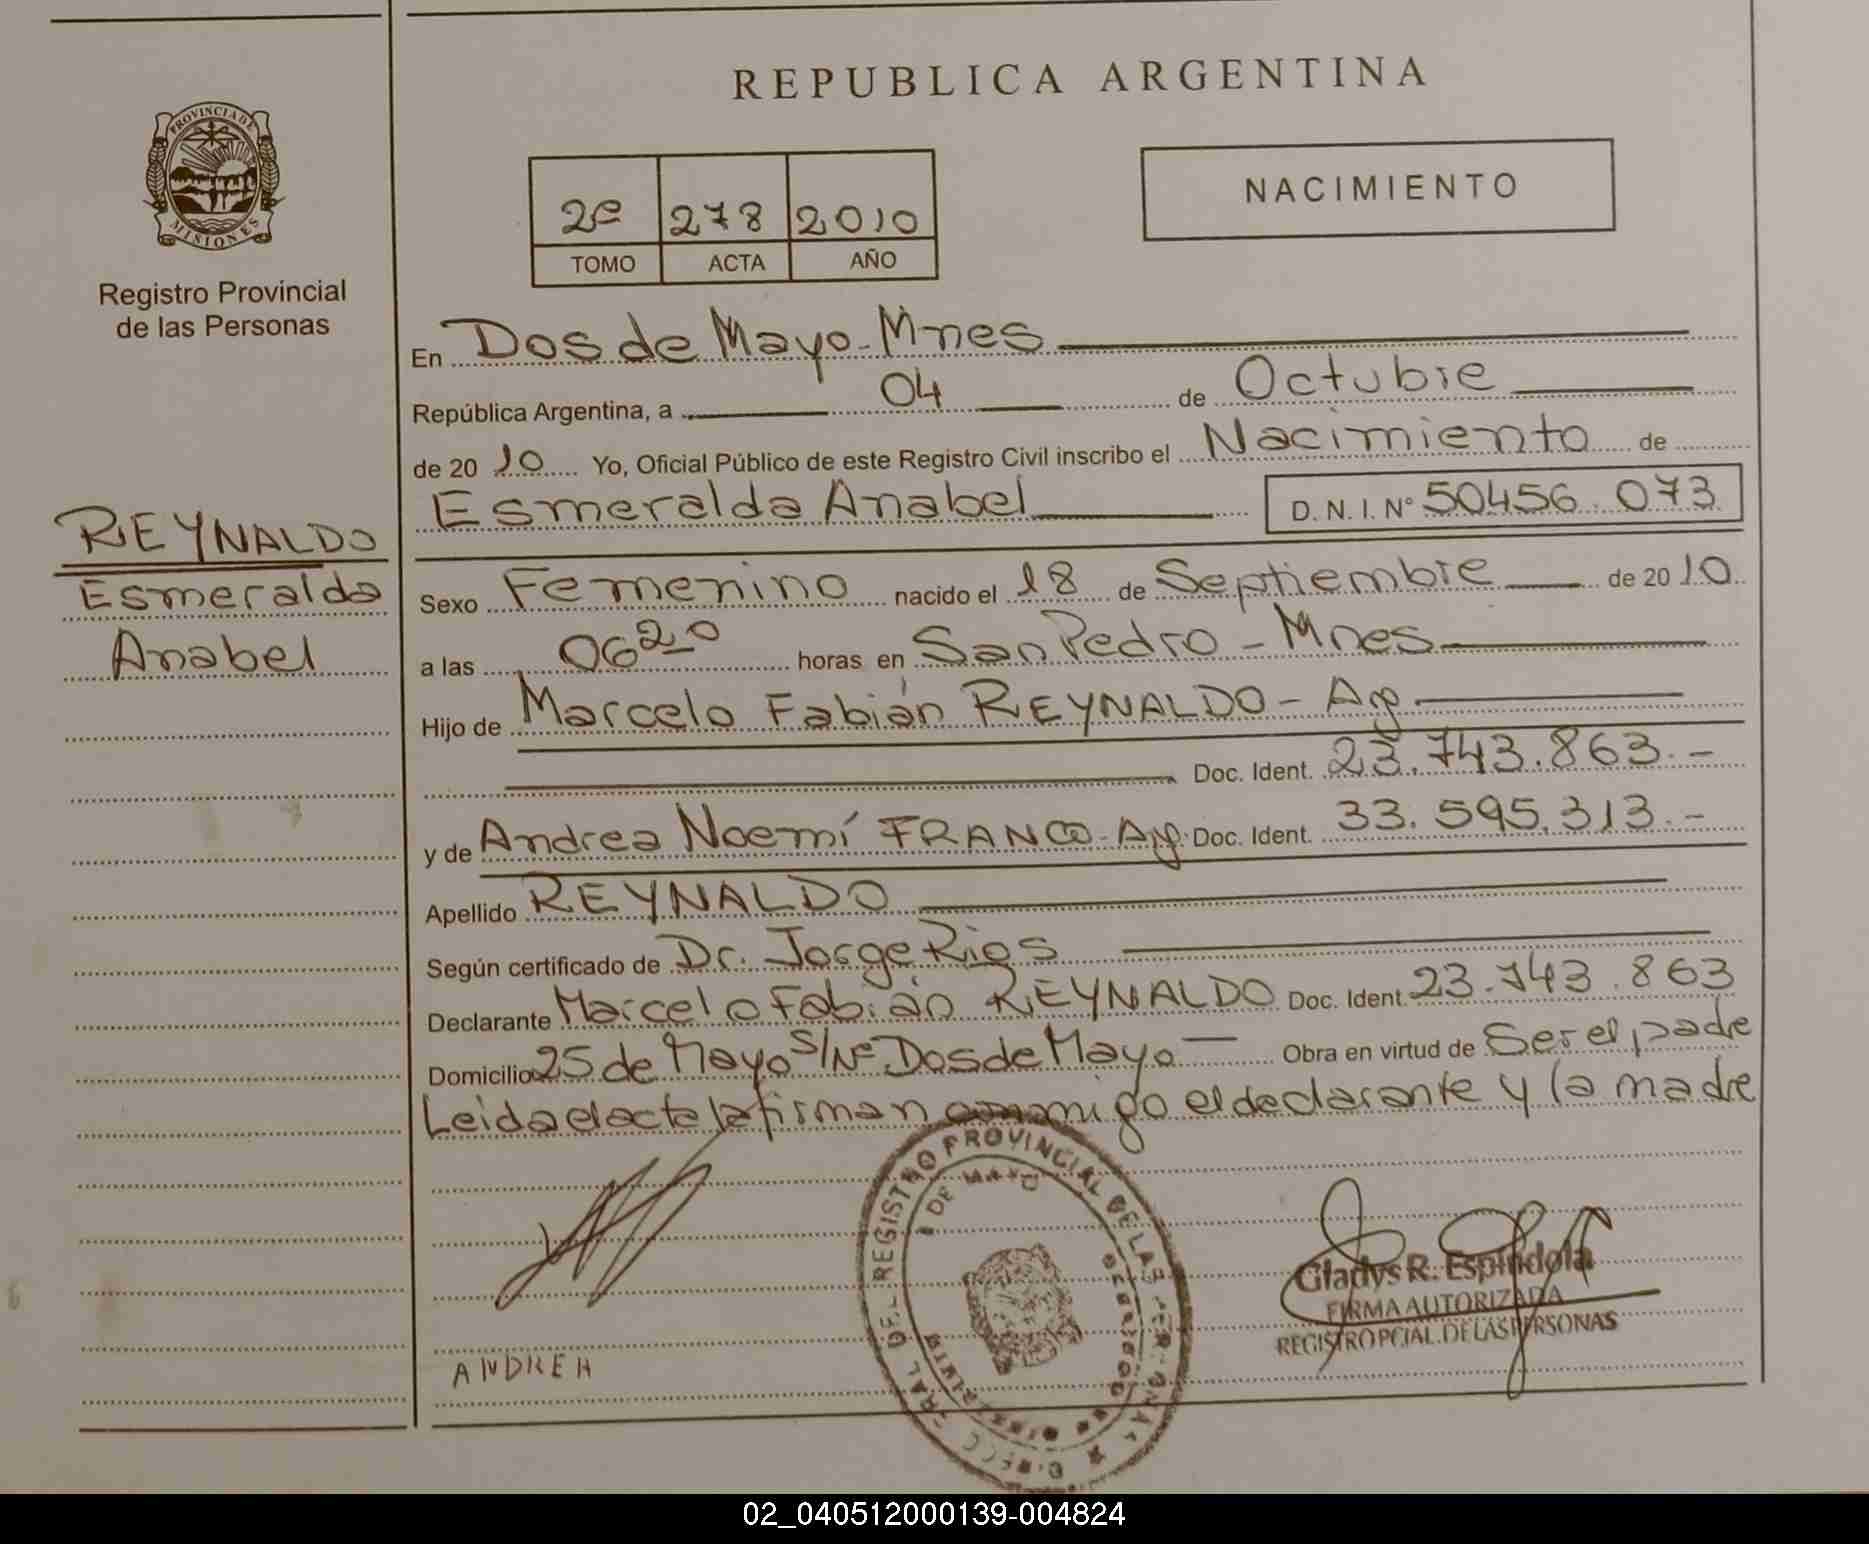 REPUBLICA ARGENTINA
PROVINCIA DE
MISIONES
Registro Provincial
de las Personas
2º 278 2010
TOMO ACTA AÑO
NACIMIENTO
En Dos de Mayo - Mnes
República Argentina, a 04 de Octubre
de 20 10 Yo, Oficial Público de este Registro Civil inscribo el Nacimiento de
Esmeralda Anabel D.N.I. Nº 50456.073
REYNALDO
Esmeralda
Anabel
Sexo Femenino nacido el 18 de Septiembre de 20 10
a las 06 20 horas en San Pedro - Mnes
Hijo de Marcelo Fabián REYNALDO - Arg
Doc. Ident. 23.743.863.-
y de Andrea Noemí FRANCO - Arg. Doc. Ident. 33.595.313.-
Apellido REYNALDO
Según certificado de Dr. Jorge Rios
Declarante Marcelo Fabián REYNALDO Doc. Ident. 23.743.863
Domicilio 25 de Mayo S/Nº Dos de Mayo - Obra en virtud de Ser el padre
Leida el acta la firman conmigo el declarante y la madre
REGISTRO PROVINCIAL DE LAS
DE MAYO
ANDREA
Gladys R. Espindola
FIRMA AUTORIZADA
REGISTRO PCIAL. DE LAS PERSONAS
02_040512000139-004824